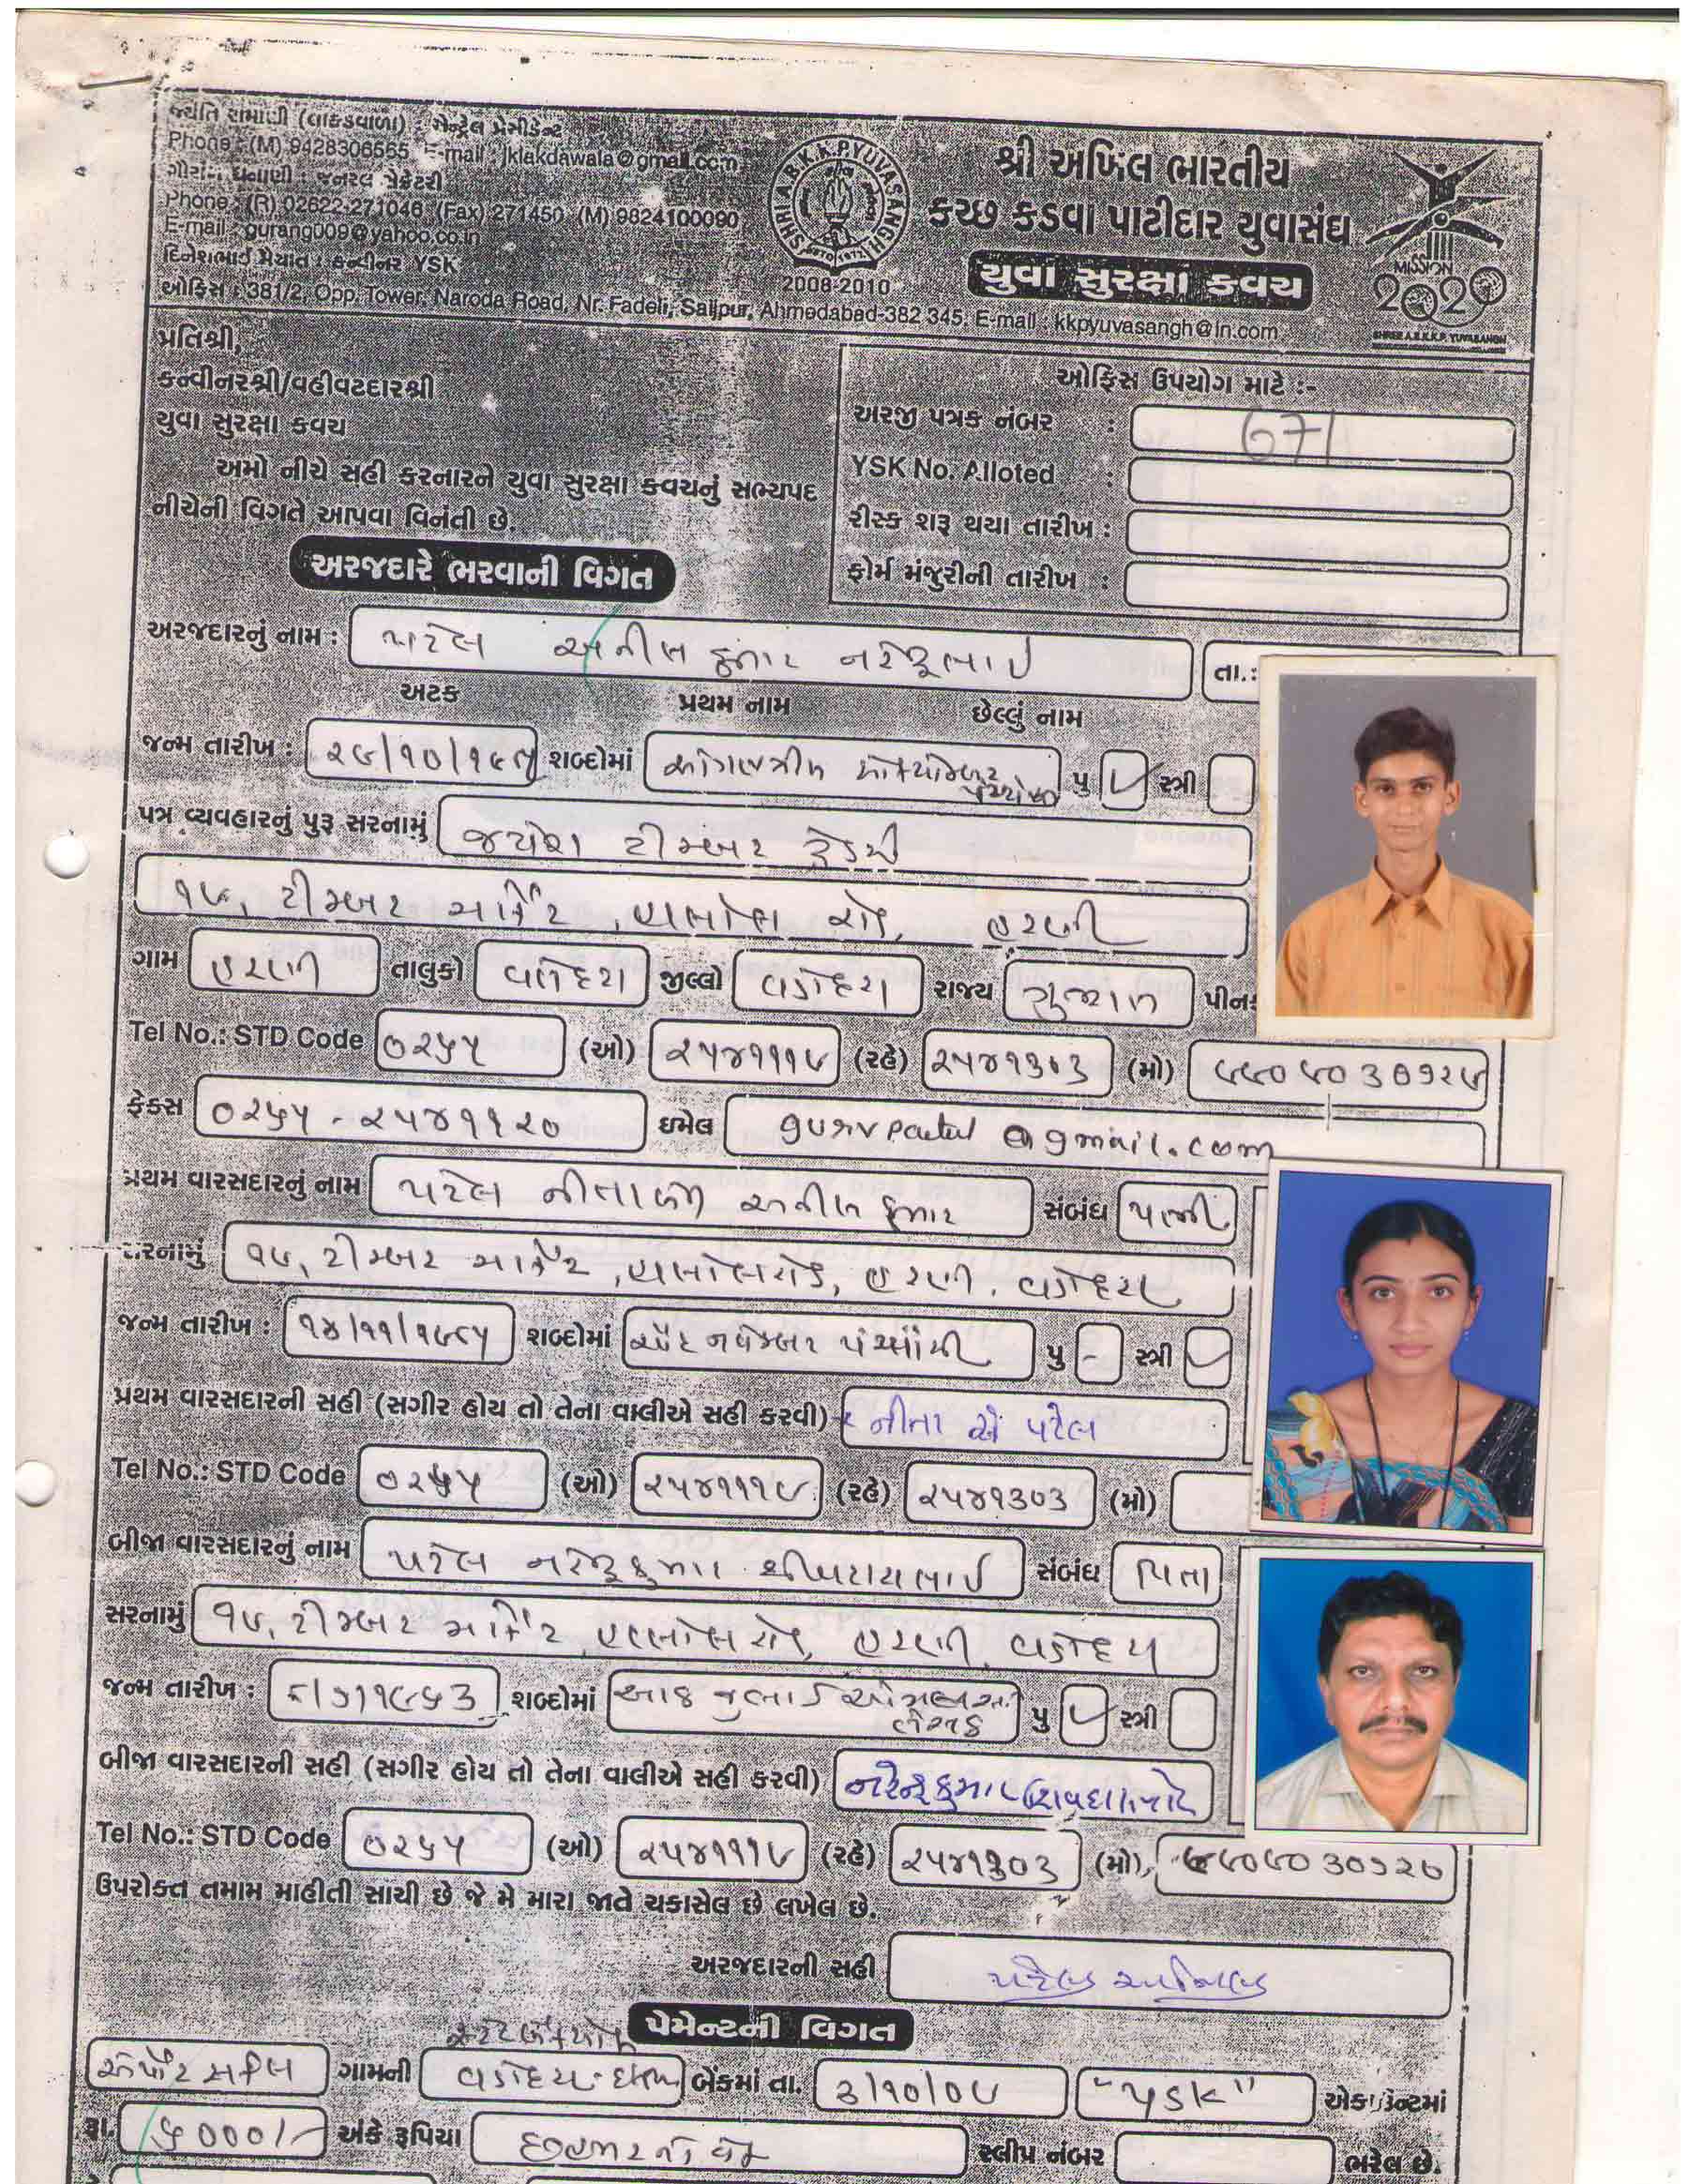 જ્યોતિ રામાણી (લાકડાવાળા) : સેન્ટ્રલ પ્રેસીડેન્ટ
Phone : (M) 9428306565 E-mail : jklakdawala@gmail.com
ગૌરાંગ ધનાણી : જનરલ સેક્રેટરી
Phone : (R) 02622-271046, (Fax) 271450 (M) 9824100090
E-mail : gurang009@yahoo.co.in
કન્વીનર YSK
ઓફિસ : 381/2, Opp. Tower, Naroda Road, Nr. Fadeli, Saijpur, Ahmedabad-382 345. E-mail : kkpyuvasangh@in.com
SHRI A.B.K.K.P. YUVASANGH
2008-2010
શ્રી અખિલ ભારતીય
કચ્છ કડવા પાટીદાર યુવાસંઘ
યુવા સુરક્ષા કવચ
MISSION
2020
SHREE A.B.K.K.P. YUVASANGH
પ્રતિશ્રી,
કન્વીનરશ્રી/વહીવટદારશ્રી
યુવા સુરક્ષા કવચ
અમો નીચે સહી કરનારને યુવા સુરક્ષા કવચનું સભ્યપદ
નીચેની વિગતે આપવા વિનંતી છે.
ઓફિસ ઉપયોગ માટે :-
અરજી પત્રક નંબર : 671
YSK No. Alloted :
રીસ્ક શરૂ થયા તારીખ :
ફોર્મ મંજુરીની તારીખ :
અરજદારે ભરવાની વિગત
અરજદારનું નામ : પટેલ અનીલ કુમાર નરેન્દ્રભાઈ તા.:
અટક પ્રથમ નામ છેલ્લું નામ
જન્મ તારીખ : શબ્દોમાં પુ સ્ત્રી
પત્ર વ્યવહારનું પુરૂ સરનામું જયેશ ટીમ્બર ટ્રેડર્સ
૧૯, ટીમ્બર માર્કેટ, હાલોલ રોડ, હરણી
ગામ હરણી તાલુકો વડોદરા જીલ્લો વડોદરા રાજ્ય ગુજરાત પીન
Tel No.: STD Code ૦૨૬૫ (ઓ) ૨૫૪૧૧૧૯ (રહે) ૨૫૪૧૩૦૩ (મો)
ફેક્સ ૦૨૬૫ - ૨૫૪૧૧૨૦ ઇમેલ @gmail.com
પ્રથમ વારસદારનું નામ પટેલ નીતાબેન અનીલ કુમાર સંબંધ પત્ની
સરનામું ૧૯, ટીમ્બર માર્કેટ, હાલોલ રોડ, હરણી, વડોદરા
જન્મ તારીખ : શબ્દોમાં ચૌદ નવેમ્બર પંચ્યાસી પુ - સ્ત્રી
પ્રથમ વારસદારની સહી (સગીર હોય તો તેના વાલીએ સહી કરવી) નીતા એ પટેલ
Tel No.: STD Code ૦૨૬૫ (ઓ) ૨૫૪૧૧૧૯ (રહે) ૨૫૪૧૩૦૩ (મો)
બીજા વારસદારનું નામ પટેલ નરેન્દ્રકુમાર સંબંધ પિતા
સરનામું ૧૯, ટીમ્બર માર્કેટ, હાલોલ રોડ, હરણી, વડોદરા
જન્મ તારીખ : ૮/૭/૧૯૬૩ શબ્દોમાં આઠ જુલાઈ પુ સ્ત્રી
બીજા વારસદારની સહી (સગીર હોય તો તેના વાલીએ સહી કરવી) નરેન્દ્રકુમાર
Tel No.: STD Code ૦૨૬૫ (ઓ) ૨૫૪૧૧૧૯ (રહે) ૨૫૪૧૩૦૩ (મો)
ઉપરોક્ત તમામ માહીતી સાચી છે જે મે મારા જાતે ચકાસેલ છે લખેલ છે.
અરજદારની સહી પટેલ અનિલ
પેમેન્ટની વિગત
ગામની વડોદરા બેંકમાં તા. ૩/૧૦/૦૯ "YSK" એકાઉન્ટમાં
રૂા. ૬૦૦૦/- અંકે રૂપિયા સ્લીપ નંબર ભરેલ છે.